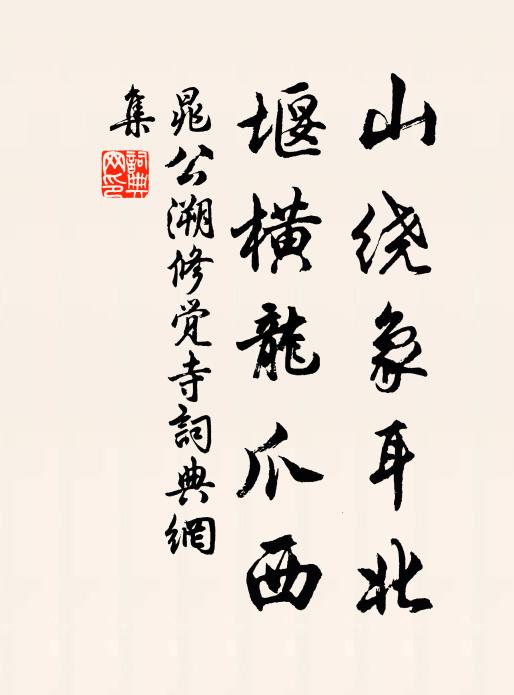 山绕象耳北
堰横龍爪西
晁公溯修觉寺詞典網
集
詞典网印